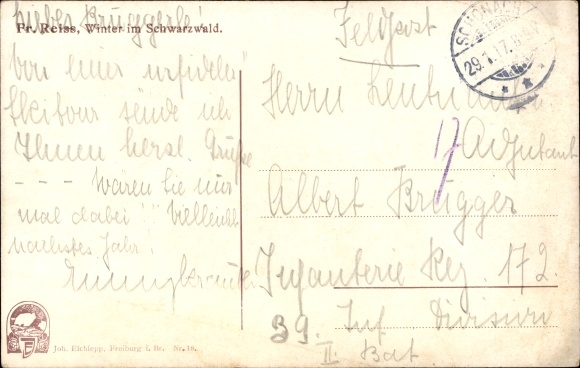 Liebes Bruggerle!
Fr. Reiss, Winter im Schwarzwald.
Von einer urfidelen
Skitour sende ich
Ihnen herzl. Grüße
--- Wären Sie nur
mal dabei!! Vielleicht
nächstes Jahr!
Feldpost
SCHONACH
29.1.17.8-9V.
Herrn Leutnant
17
Adjutant
Albert Brugger
Infanterie Reg. 172.
39. Inf Division
II. Bat
Joh. Elchlepp, Freiburg i. Br. Nr. 18.